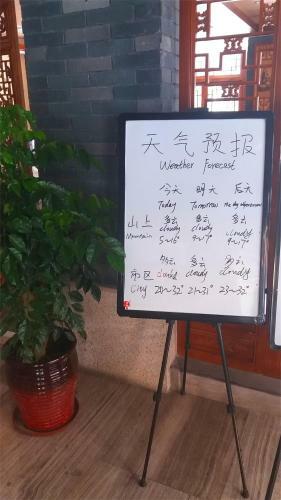 天气预报
Weather Forecast
今天 明天 后天
Today Tomorrow
山上 多云 多云 多云
Mountain cloudy cloudy cloudy
5~16° 9~17° 9~17°
多云 多云 多云
市区 cloudy cloudy cloudy
City 20~32° 21~31° 23~32°